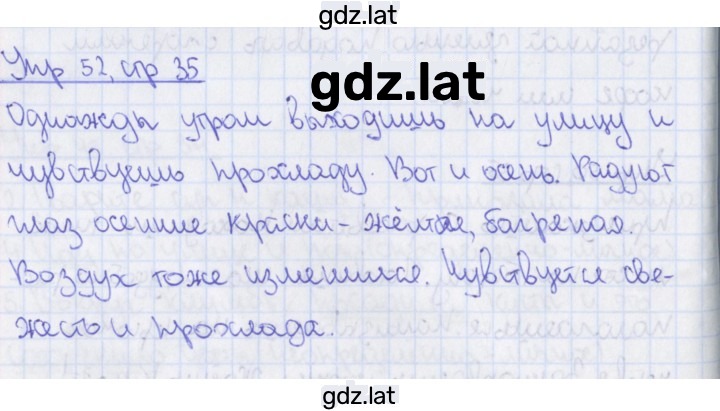 gdz.lat
Упр 52, стр 35
gdz.lat
Однажды утром выходишь на улицу и
чувствуешь прохладу. Вот и осень. Радуют
глаз осенние краски - жёлтая, багряная.
Воздух тоже изменился. Чувствуется све-
жесть и прохлада.
gdz.lat